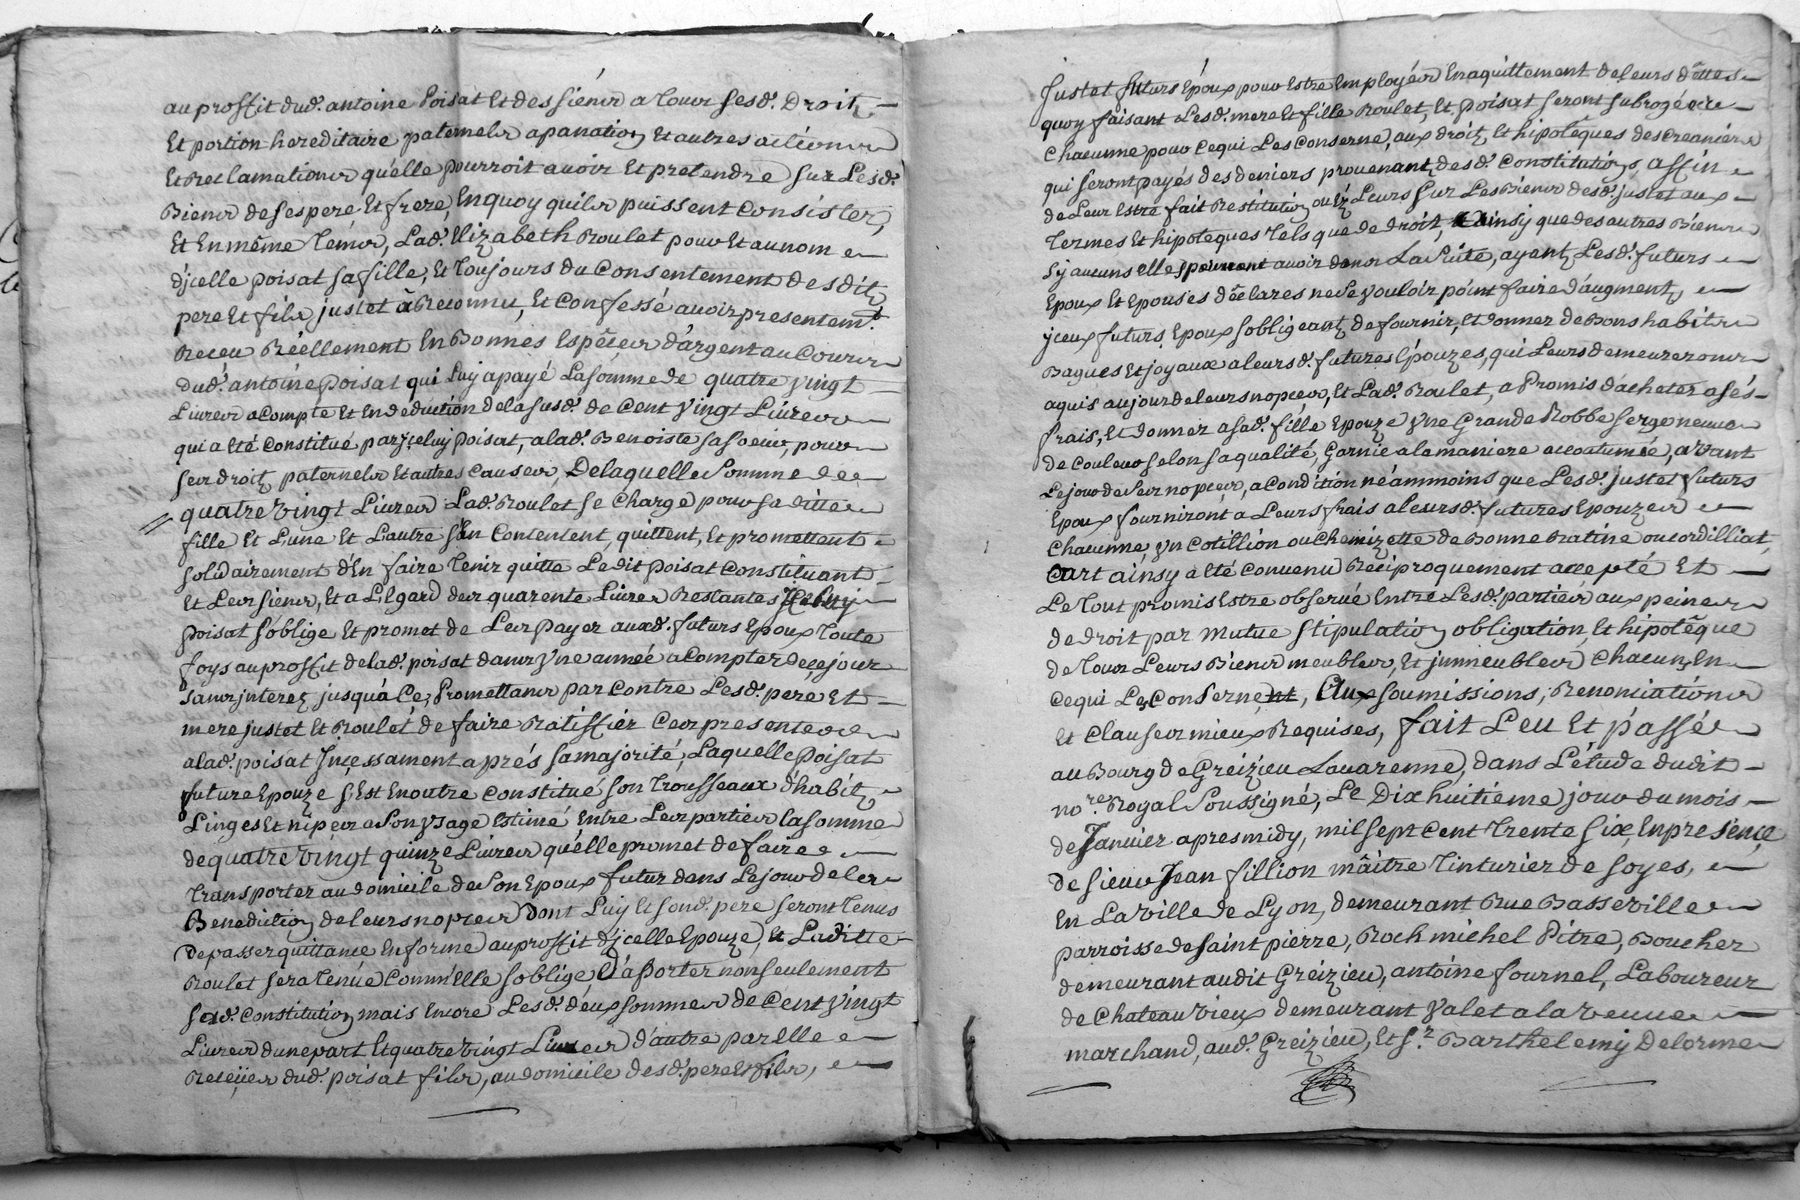 au proffit dud. antoine Poisat Et des siens a tous sesd. Droits
Et portion hereditaire paternels apanation Et autres actions
Et Reclamations qu'elle pourroit avoir Et pretendre sur Lesd.
Biens de ses pere Et frere, En quoy quils puissent Consister,
Et En même tems, Lad. Elizabeth Roulet pour Et au nom
d'jcelle poisat sa fille, Et toujours du Consentement desdits
pere Et fils justet à Reconnu, Et Confessé avoir presentemt.
Receu Réellement En Bonnes Espêces d'argent au Cours
dud. antoine poisat qui Luy a payé La somme de quatre vingt
Livres a Compte Et En deduction de la susd. de Cent vingt Livres
qui a Eté Constitué par jceluy poisat, a lad. Benoiste sa soeur, pour
ses droits paternels Et autres Causes, De laquelle Somme de
quatre vingt Livres Lad. Roulet se Charge pour sa ditte
fille Et L'une Et L'autre s'En Contentent, quittent, Et promettent
solidairement d'En faire tenir quitte Ledit poisat Constituant
Et Les siens, Et a L'Egard des quarente Livres Restantes
poisat s'oblige Et promet de Les payer auxd. futurs Epoux toute
foys au proffit de lad. poisat dans Vne année a Compter de ce jour
sans jnterez jusqu'à Ce, Promettans par Contre Lesd. pere Et
mere justet Et Roulet de faire Ratiffier Ces presentes
a lad. poisat Jncessament aprés sa majorité, Laquelle Poisat
future Epouze s'Est En outre Constitué son trousseaux d'habits
Linges Et nipes a Son Vsage Estimé Entre Les parties la somme
de quatre vingt quinze Livres qu'elle promet de faire
transporter au domicile de Son Epoux futur dans Le jour de la
Benediction de leurs nopces Dont Luy Et Sond. pere seront tenus
De passer quittance En forme au proffit d'jcelle Epouze, Et Laditte
Roulet sera tenüe Comm'Elle s'oblige, D'aporter non seulement
sad. Constitution mais Encore Lesd. deux sommes de Cent vingt
Livres d'une part Et quatre vingt Livres d'autre par Elle
Receües dud. poisat fils, au domicile desd. pere Et fils,
Justet futurs Epoux pour Estre Employés En aquittement de leurs dêttes
quoy faisant Lesd. mere Et fille Roulet, Et Poisat seront subrogées
Chacunne pour Ce qui Les Conserne, aux droits Et hipotêques des Creanciers
qui seront payés des deniers provenants desd. Constitutions, affin
de Leur Estre fait Restitution ou Ez Leurs sur Les Biens desd. justet aux
termes Et hipoteques tels que de droit, Ainsy que des autres Biens
sy aucuns Elles pourront avoir dans La suite, ayants Lesd. futurs
Epoux Et Epouses dêclarés ne se vouloir point faire d'augment,
yceux futurs Epoux s'obligeants de fournir, Et donner de Bons habits
Bagues Et joyaux a leursd. futures Epouzes, qui Leurs demeureront
aquis au jour de leurs nopces, Et Lad. Roulet, a Promis d'acheter a sés
frais, Et donner a sad. fille Epouze Vne Grande Robbe serge neuve
de Couleur selon sa qualité, Garnie a la maniere accoutumée, avant
Le jour de Ses nopces, a Condition néammoins que Lesd. justet futurs
Epoux fourniront a Leurs frais a leursd. futures Epouzes
Chacunne, Vn Cotillion ou Chemizette de Bonne Ratine ou Cordilliat,
Cart ainsy a Eté Convenu Réciproquement accepté Et
Le tout promis Estre observé Entre Lesd. parties aux peines
de droit par mutue stipulation obligation Et hipotêque
de tous Leurs Biens meubles, Et jmmeubles Chacun, En
Ce qui Les Conserne, Aux soumissions, Renonciations
Et Clauses mieux Requises, fait Leu Et passé
au Bourg de Greizieu Lavarenne, dans L'étude dudit
nore. Royal Soussigné, Le Dix huitieme jour du mois
de Janvier apres midy, mil sept Cent trente six, En presence
de sieur Jean fillion mâitre tinturier de soyes,
En La ville de Lyon, demeurant Rue Basseville
parroisse de saint pierre, Roch michel Pitre, Boucher
demeurant audit Greizieu, antoine fournel, Laboureur
de Chateauvieux demeurant valet a la veuve
marchand, aud. Greizieu, Et Sr. Barthelemy Delorme